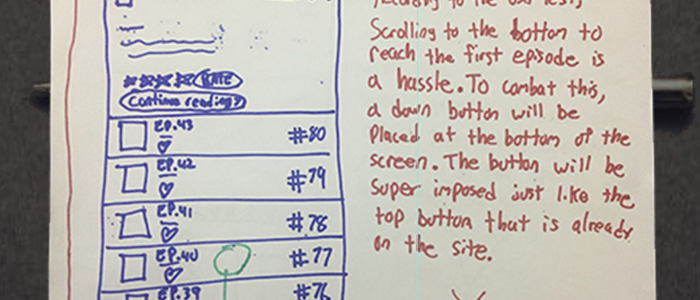 RATE
Continue reading?
EP.43
#80
EP.42
#79
EP.41
#78
EP.40
#77
EP.39
#76
According to the user tests,
Scrolling to the bottom to
reach the first episode is
a hassle. To combat this,
a down button will be
Placed at the bottom of the
screen. The button will be
Super imposed just like the
top button that is already
on the site.